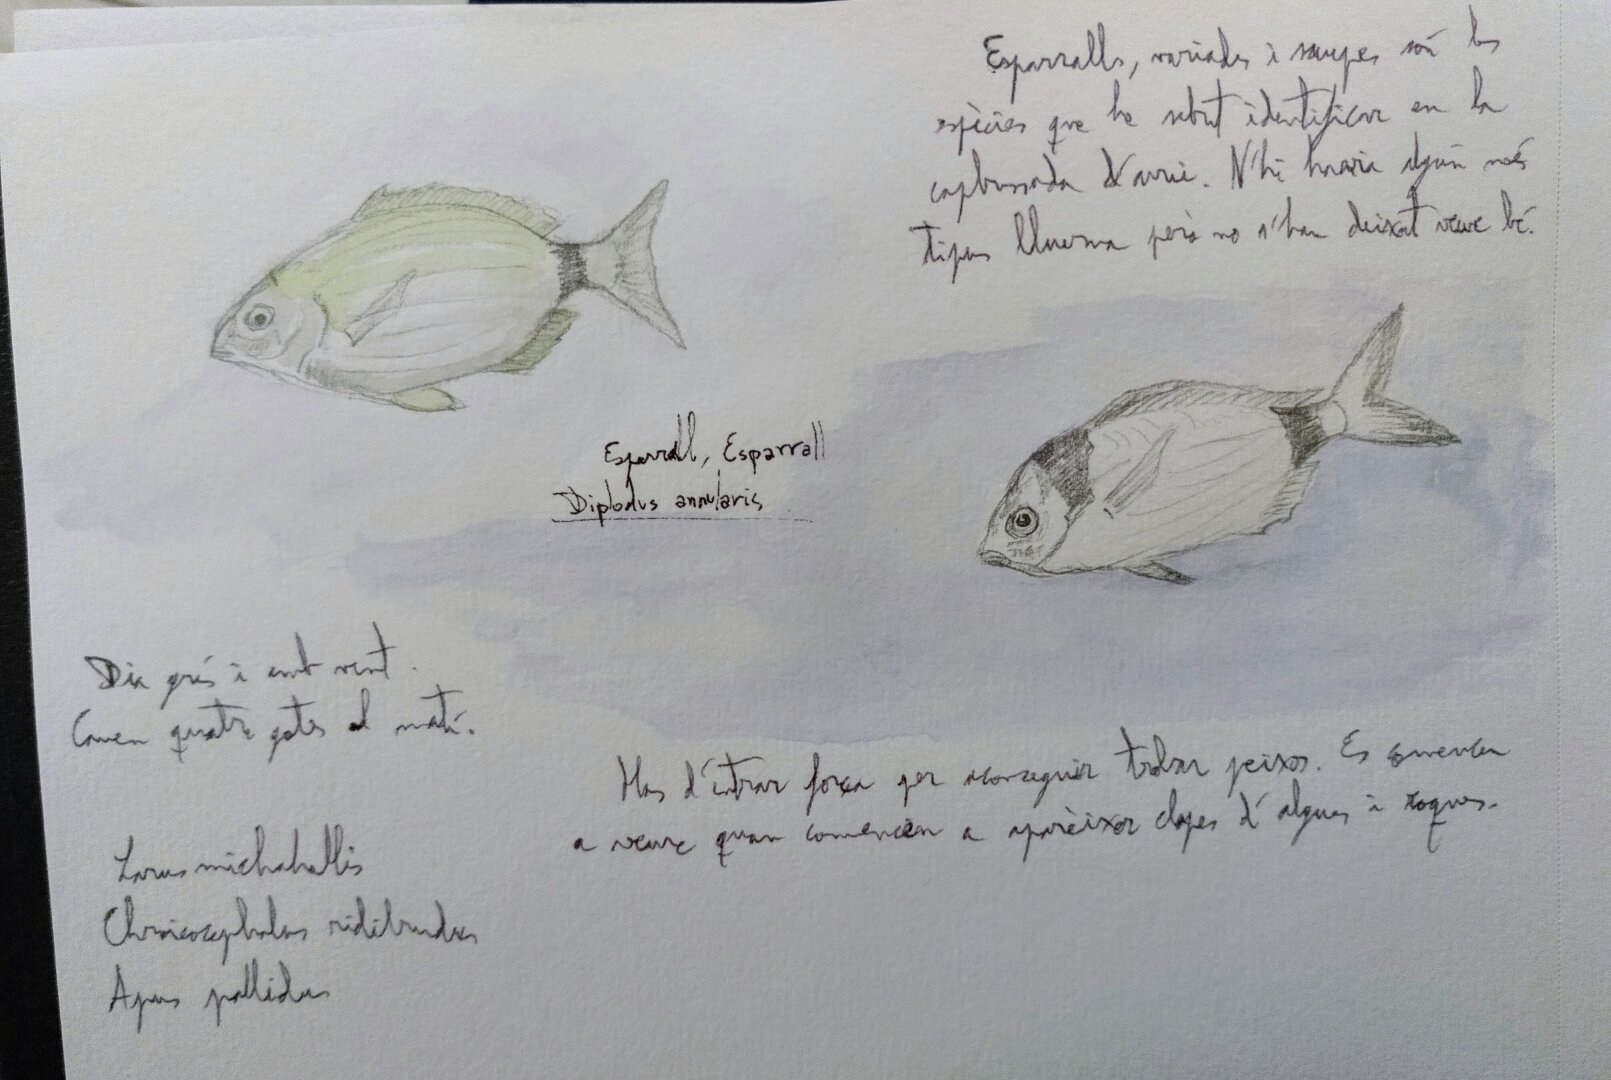 Esparralls, variades i saupes són les
espècies que he sabut identificar en la
capbussada d'avui. N'hi hauria algún més
tipus lluerna però no s'han deixat veure bé.
Esparrall, Esparrall
Diplodus annularis
Dia gris i amb vent.
Cauen quatre gotes al matí.
Has d'entrar força per aconseguir trobar peixos. Es comencen
a veure quan comencen a aparèixer clapes d'algues i roques.
Larus michahellis
Chroicocephalus ridibundus
Apus pallidus